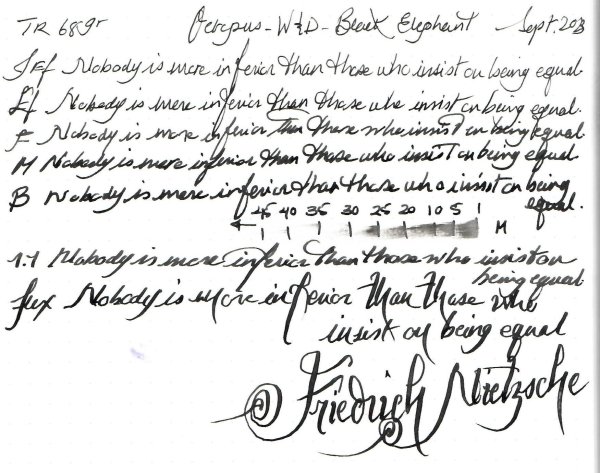 TR 68gr Octopus - W&D - Black Elephant Sept. 2013
Nobody is more inferior than those who insist on being equal.
Ef Nobody is more inferior than those who insist on being equal.
F Nobody is more inferior than those who insist on being equal
M Nobody is more inferior than those who insist on being equal
B Nobody is more inferior than those who insist on being
equal.
45 40 35 30 25 20 10 5 1 M
1.1 Nobody is more inferior than those who insist on
being equal
flex Nobody is more inferior than those who
insist on being equal
Friedrich Nietzsche